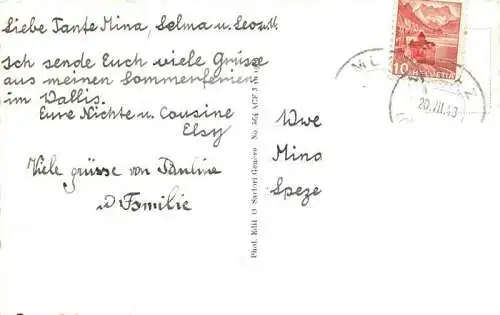 Liebe Tante Mina, Selma u.
Ich sende Euch viele Grüsse
aus meinen Sommerferien
im Wallis.
Eure Nichte u. Cousine
Elsy
Viele grüsse von Pauline
Familie
Phot. Edit O Sartori Genève No.
10 HELVETIA
20.VII.43
Uwe
Mina
Speze